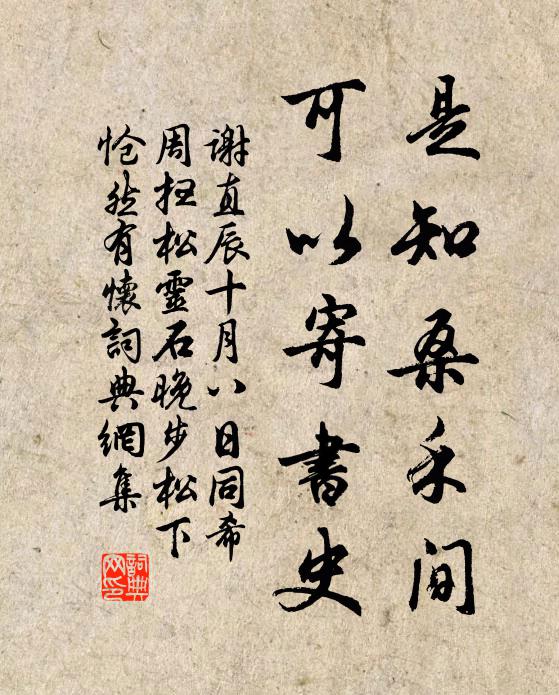 是知桑禾間
可以寄書史
謝直辰十月八日同希
周扫松靈石晚步松下
怆然有懷詞典網集
詞典
网印